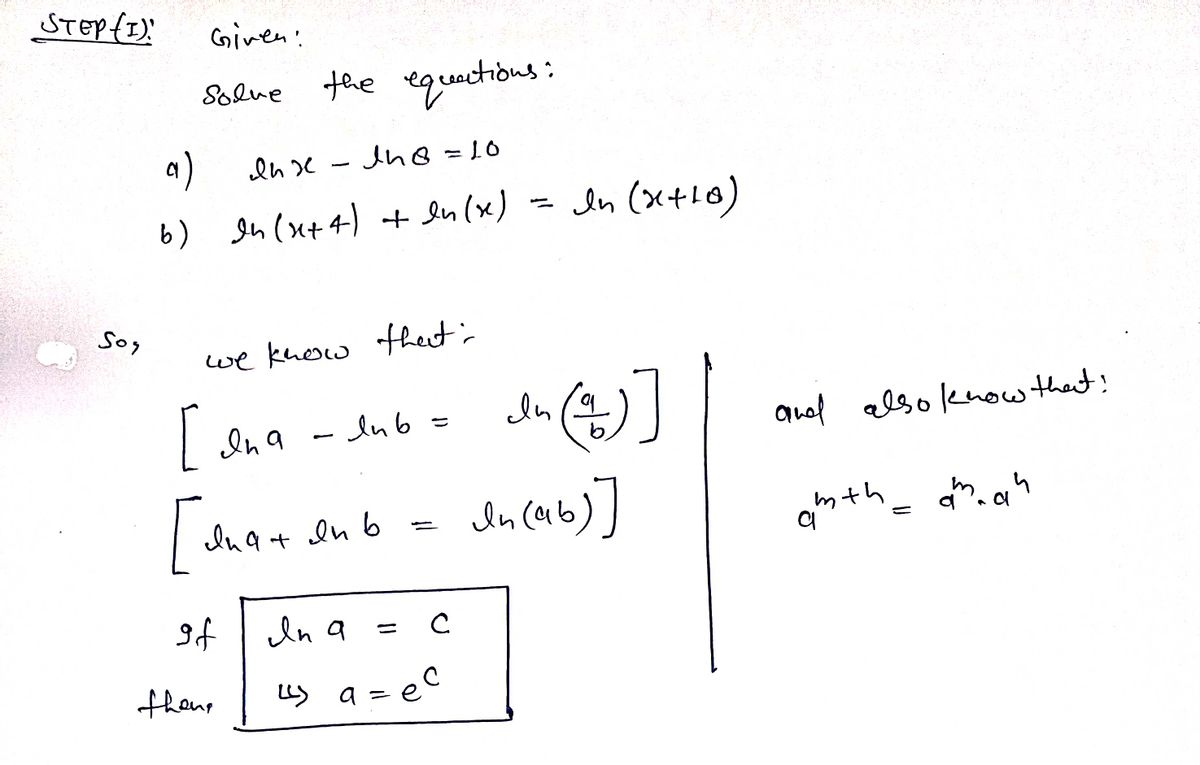 STEP (I):
Given:
Solve the equations:
a) ln x - ln 8 = 10
b) ln (x+4) + ln (x) = ln (x+18)
So, we know that:
[ ln a - ln b = ln (a/b) ]
[ ln a + ln b = ln (ab) ]
If ln a = c
then, ⇒ a = e^c
and also know that:
a^m+n = a^m . a^n